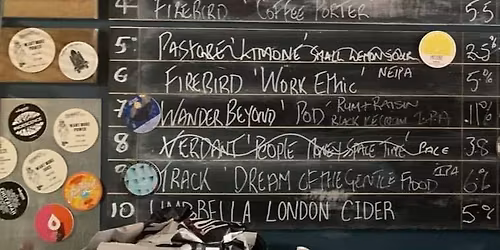 4 FIREBIRD 'COFFEE PORTER 5.5
5 PASTORE 'LIMONE' SMALL LEMON SOUR 2.5%
6 FIREBIRD 'WORK ETHIC' NEIPA 5%
7 WANDER BEYOND 'POD' RUM + RAISIN BLACK ICE CREAM 11%
8 VERDANT 'PEOPLE TIME' PALE 3.8
9 TRACK 'DREAM OF THE GENTLE FLOOD' IPA 6%
10 UMBRELLA LONDON CIDER 5%